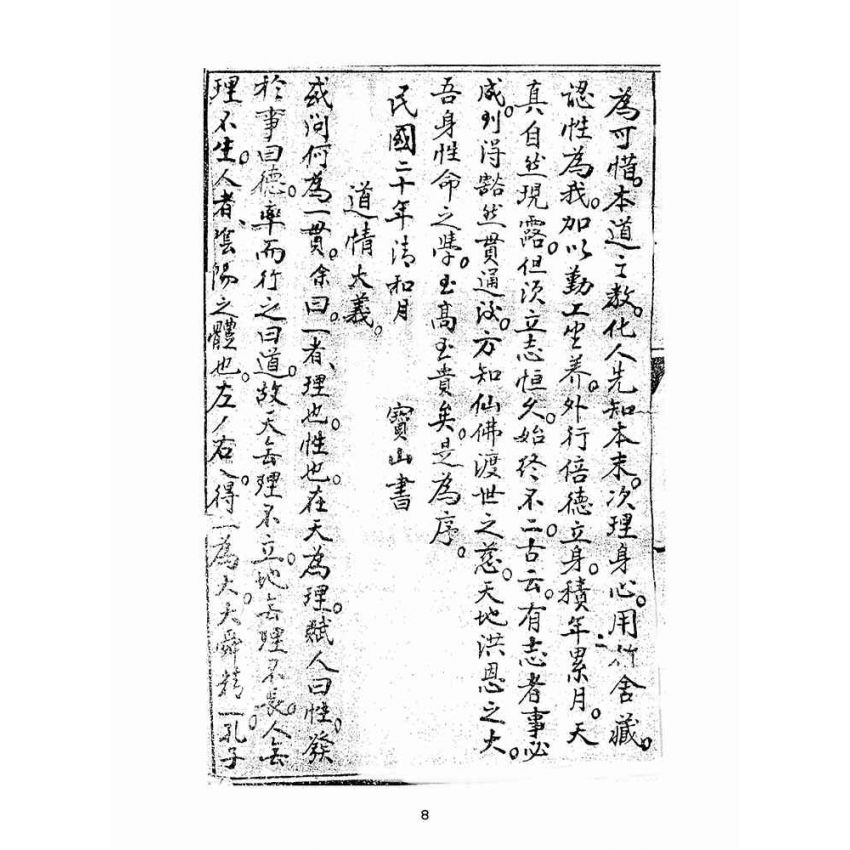 為可惜。本道之教。化人先知本末。次理身心。用行舍藏。
認性為我。加以勤工坐养。外行倍德立身。積年累月。天
真自然現露。但須立志恒久。始終不二。古云。有志者事必
成。到得豁然貫通後。方知仙佛渡世之慈。天地洪恩之大。
吾身性命之學。至高至貴矣。是為序。
民國二十年清和月 寶山書
道情大義。
或問何為一貫。余曰。一者、理也。性也。在天為理。賦人曰性。發
於事曰德。率而行之曰道。故天無理不立。地無理不長。人無
理不生。人者、陰陽之體也。左丿右乀。得一為大。大舜精一。孔子
8